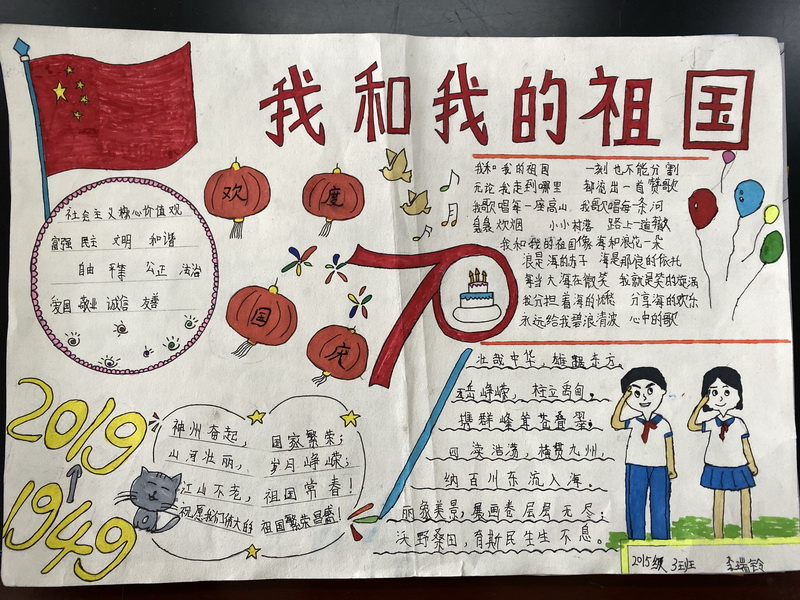 我和我的祖国
欢度
国庆
社会主义核心价值观
富强 民主 文明 和谐
自由 平等 公正 法治
爱国 敬业 诚信 友善
70
我和我的祖国 一刻也不能分割
无论我走到哪里 都流出一首赞歌
我歌唱每一座高山 我歌唱每一条河
袅袅炊烟 小小村落 路上一道辙
我和我的祖国像海和浪花一朵
浪是海的赤子 海是那浪的依托
每当大海在微笑 我就是笑的旋涡
我分担着海的忧愁 分享海的欢乐
永远给我碧浪清波 心中的歌
壮哉中华,雄踞东方,
五岳峥嵘,柱立
携群峰耸苍叠翠;
四渎浩荡,横贯九州,
纳百川东流入海。
丽象美景,展画卷层层无尽;
沃野桑田,育斯民生生不息。
2019
1949
神州奋起, 国家繁荣;
山河壮丽, 岁月峥嵘;
江山不老, 祖国常春!
祝愿我们伟大的 祖国繁荣昌盛!
2015级 3班 李瑞